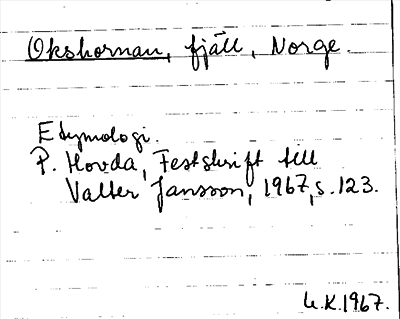 Okshornan, fjäll, Norge.
Etymologi.
P. Hovda, Festskrift till
Valter Jansson, 1967, s. 123.
U.K. 1967.